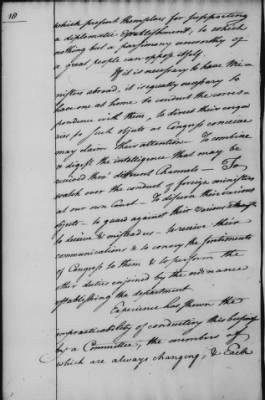 10
which present themselves for supporting
a diplomatic Establishment, to which
nothing but a parsimony unworthy of
a great people can oppose itself.
If it is necessary to have Mi-
nisters abroad, it is equally necessary to
have one at home to conduct the corres-
pondence with them, to direct their enqui
ries to such objects as Congress conceive
may claim their attention. To combine
& digest the intelligence that may be
received thro different Channels — To
watch over the conduct of foreign ministers
at our own Court — To discern their various
objects — to guard against their various
to deceive & mislead us — to receive their
communications & to convey the sentiments
of Congress to them & to perform the
other duties enjoined by the ordinance
establishing the department
Experience has shewn the
impracticability of conducting this business
by a Committee, the members of
which are always changing, & Each